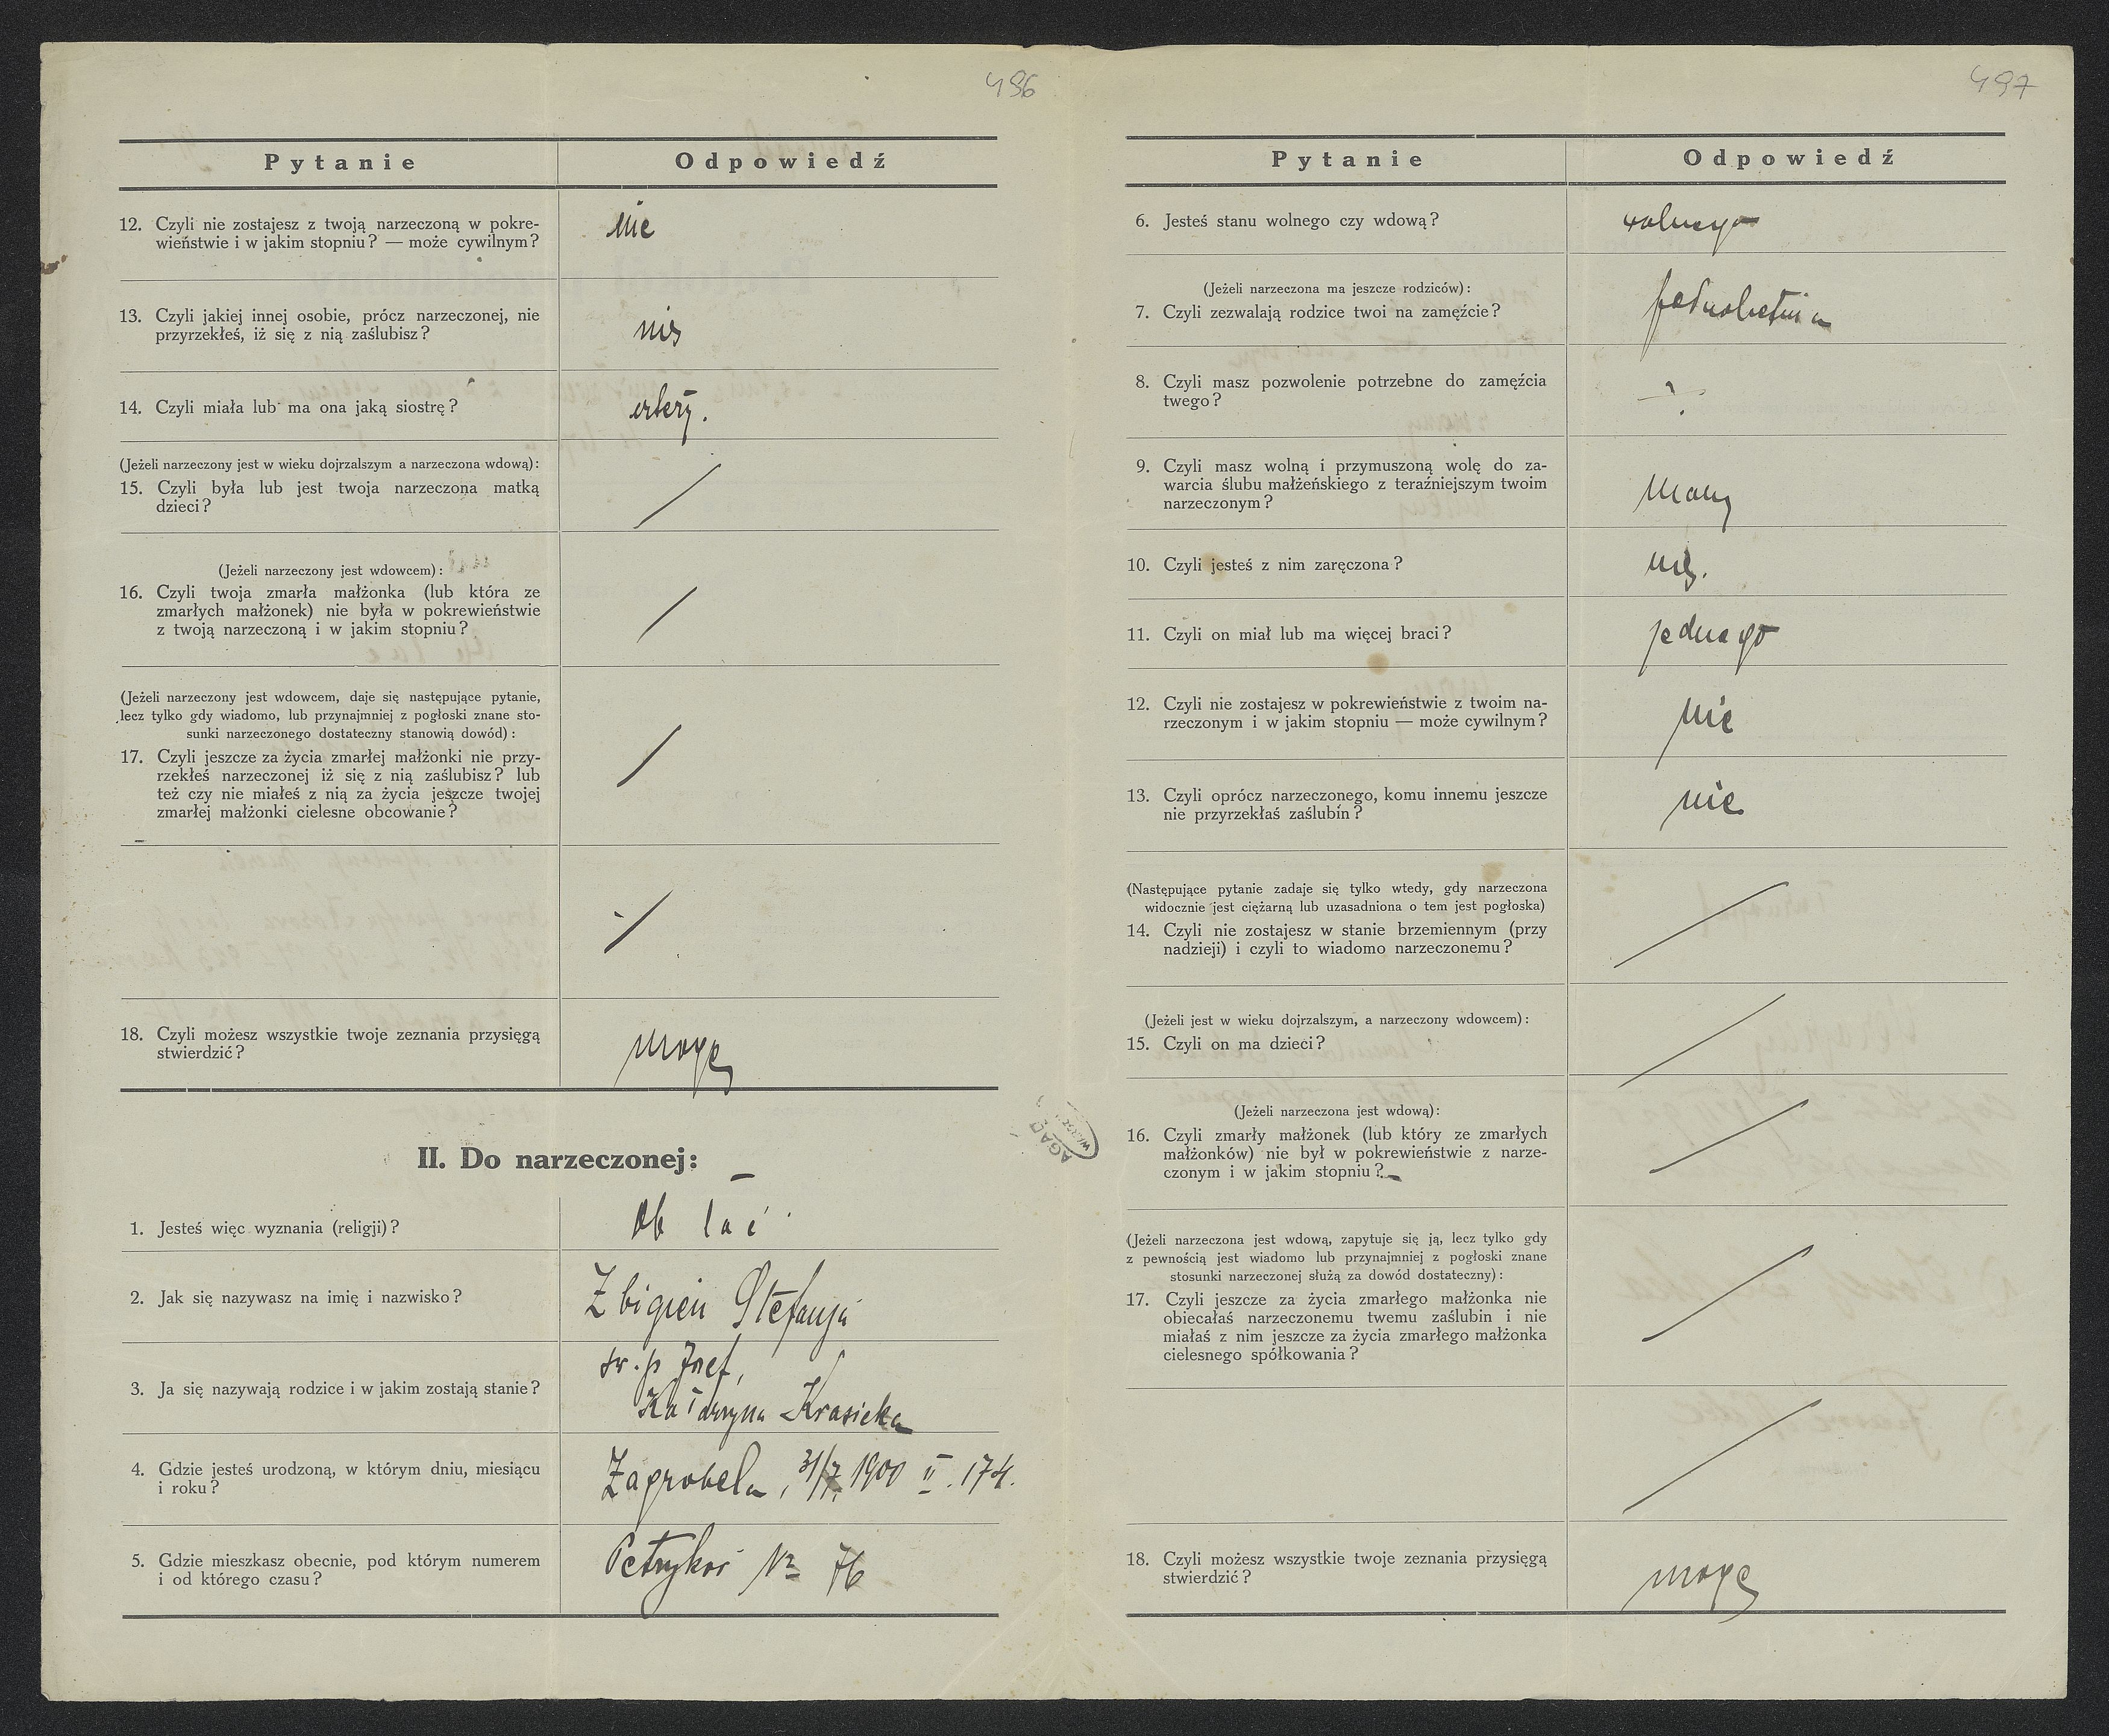 496
Pytanie Odpowiedź
12. Czyli nie zostajesz z twoją narzeczoną w pokre-
wieństwie i w jakim stopniu? — może cywilnym?
nie
13. Czyli jakiej innej osobie, prócz narzeczonej, nie
przyrzekłeś, iż się z nią zaślubisz?
nie
14. Czyli miała lub ma ona jaką siostrę?
cztery.
(Jeżeli narzeczony jest w wieku dojrzalszym a narzeczona wdową):
15. Czyli była lub jest twoja narzeczona matką
dzieci?
(Jeżeli narzeczony jest wdowcem):
16. Czyli twoja zmarła małżonka (lub która ze
zmarłych małżonek) nie była w pokrewieństwie
z twoją narzeczoną i w jakim stopniu?
(Jeżeli narzeczony jest wdowcem, daje się następujące pytanie,
lecz tylko gdy wiadomo, lub przynajmniej z pogłoski znane sto-
sunki narzeczonego dostateczny stanowią dowód):
17. Czyli jeszcze za życia zmarłej małżonki nie przy-
rzekłeś narzeczonej iż się z nią zaślubisz? lub
też czy nie miałeś z nią za życia jeszcze twojej
zmarłej małżonki cielesne obcowanie?
18. Czyli możesz wszystkie twoje zeznania przysięgą
stwierdzić?
mogę
II. Do narzeczonej:
1. Jesteś więc wyznania (religji)?
ob łać
2. Jak się nazywasz na imię i nazwisko?
Zbigień Stefanja
3. Ja się nazywają rodzice i w jakim zostają stanie?
św. p Józef,
Katarzyna Krasicka
4. Gdzie jesteś urodzoną, w którym dniu, miesiącu
i roku?
Zagrobela, 31/7, 1900 II. 174.
5. Gdzie mieszkasz obecnie, pod którym numerem
i od którego czasu?
Petryków Nr 76
AGAD
497
Pytanie Odpowiedź
6. Jesteś stanu wolnego czy wdową?
wolnego
(Jeżeli narzeczona ma jeszcze rodziców):
7. Czyli zezwalają rodzice twoi na zamęźcie?
pełnoletnia
8. Czyli masz pozwolenie potrzebne do zamęźcia
twego?
9. Czyli masz wolną i przymuszoną wolę do za-
warcia ślubu małżeńskiego z teraźniejszym twoim
narzeczonym?
mam
10. Czyli jesteś z nim zaręczona?
nie.
11. Czyli on miał lub ma więcej braci?
jednego
12. Czyli nie zostajesz w pokrewieństwie z twoim na-
rzeczonym i w jakim stopniu — może cywilnym?
nie
13. Czyli oprócz narzeczonego, komu innemu jeszcze
nie przyrzekłaś zaślubin?
nie
(Następujące pytanie zadaje się tylko wtedy, gdy narzeczona
widocznie jest ciężarną lub uzasadniona o tem jest pogłoska)
14. Czyli nie zostajesz w stanie brzemiennym (przy
nadzieji) i czyli to wiadomo narzeczonemu?
(Jeżeli jest w wieku dojrzalszym, a narzeczony wdowcem):
15. Czyli on ma dzieci?
(Jeżeli narzeczona jest wdową):
16. Czyli zmarły małżonek (lub który ze zmarłych
małżonków) nie był w pokrewieństwie z narze-
czonym i w jakim stopniu?
(Jeżeli narzeczona jest wdową, zapytuje się ją, lecz tylko gdy
z pewnością jest wiadomo lub przynajmniej z pogłoski znane
stosunki narzeczonej służą za dowód dostateczny):
17. Czyli jeszcze za życia zmarłego małżonka nie
obiecałaś narzeczonemu twemu zaślubin i nie
miałaś z nim jeszcze za życia zmarłego małżonka
cielesnego spółkowania?
18. Czyli możesz wszystkie twoje zeznania przysięgą
stwierdzić?
mogę